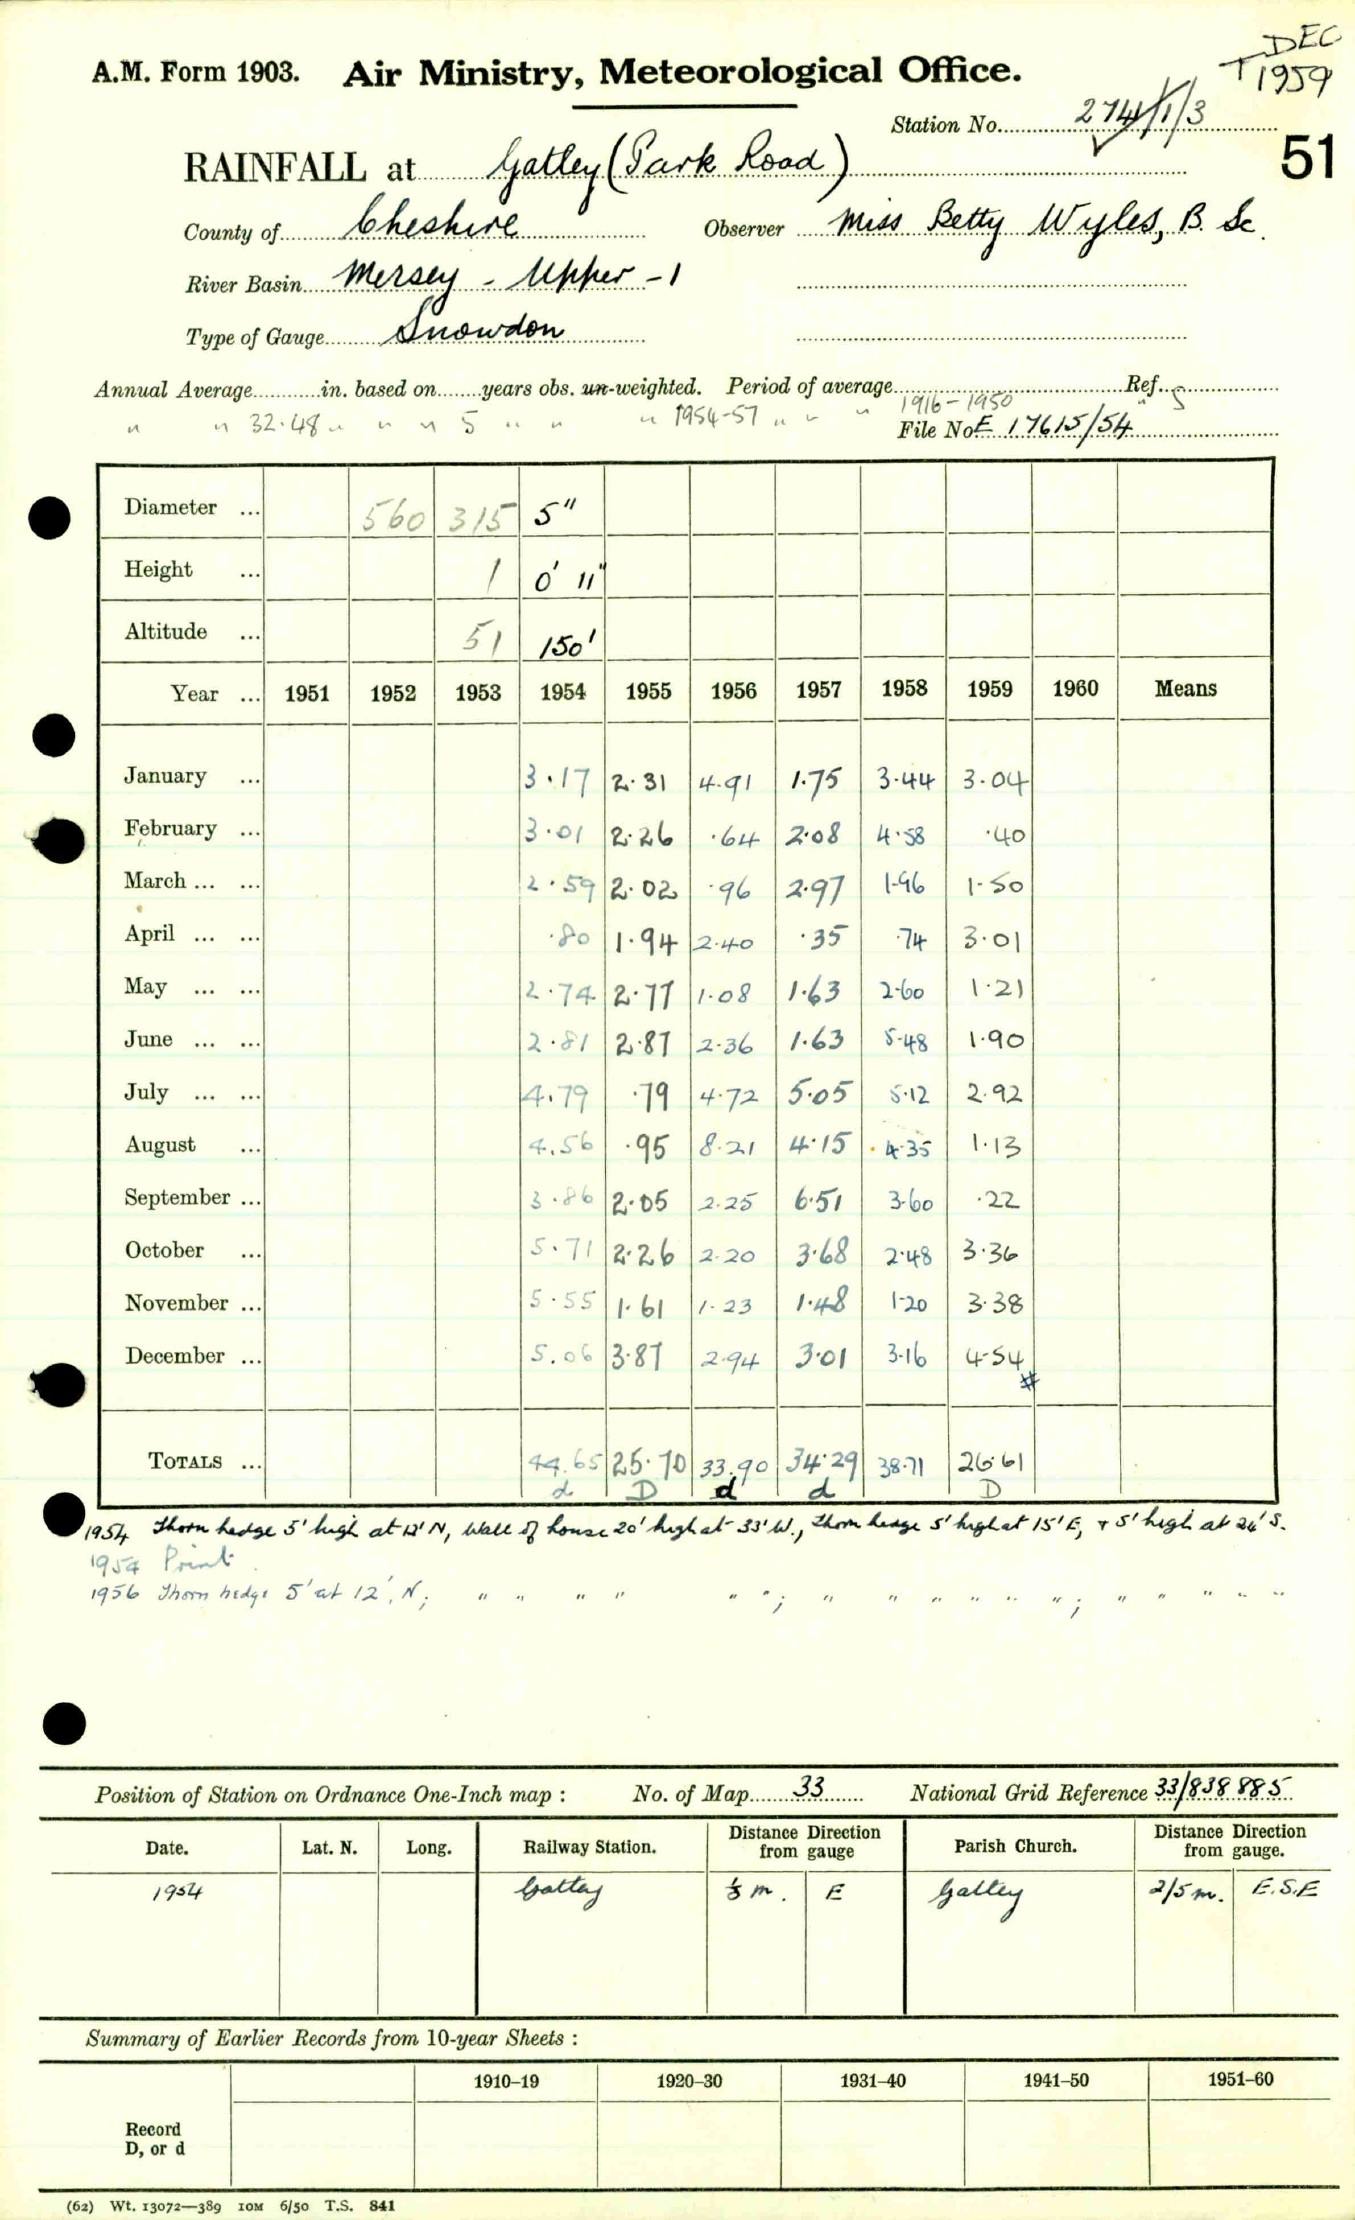 DEC
T 1959
A.M. Form 1903. Air Ministry, Meteorological Office.
Station No. 274/1/3
51
RAINFALL at Gatley (Park Road)
County of Cheshire Observer Miss Betty Wyles, B. Sc.
River Basin Mersey - Upper - 1
Type of Gauge Snowdon
Annual Average in. based on years obs. un-weighted. Period of average Ref.
" " 32.48 " " " 5 " " " 1954-57 " " " 1916-1950 " S
File No. E 17615/54
Diameter ... 560 315 5"
Height ... 1 0' 11"
Altitude ... 51 150'
Year ... 1951 1952 1953 1954 1955 1956 1957 1958 1959 1960 Means
January ... 3.17 2.31 4.91 1.75 3.44 3.04
February ... 3.01 2.26 .64 2.08 4.58 .40
March ... ... 2.59 2.02 .96 2.97 1.96 1.50
April ... ... .80 1.94 2.40 .35 .74 3.01
May ... ... 2.74 2.77 1.08 1.63 2.60 1.21
June ... ... 2.81 2.87 2.36 1.63 5.48 1.90
July ... ... 4.79 .79 4.72 5.05 5.12 2.92
August ... 4.56 .95 8.21 4.15 4.35 1.13
September ... 3.86 2.05 2.25 6.51 3.60 .22
October ... 5.71 2.26 2.20 3.68 2.48 3.36
November ... 5.55 1.61 1.23 1.48 1.20 3.38
December ... 5.06 3.87 2.94 3.01 3.16 4.54
#
TOTALS ... 44.65 25.70 33.90 34.29 38.71 26.61
d D d d D
1954 Thorn hedge 5' high at 12' N, Wall of house 20' high at 33' W., Thorn hedge 5' high at 15' E, + 5' high at 24' S.
1954 Print.
1956 Thorn hedge 5' at 12', N; " " " " " "; " " " " " "; " " " " "
Position of Station on Ordnance One-Inch map : No. of Map 33 National Grid Reference 33/838 885
Date. Lat. N. Long. Railway Station. Distance from Direction gauge Parish Church. Distance from Direction gauge.
1954 Gatley 1/3 m. E Gatley 2/5 m. E.S.E
Summary of Earlier Records from 10-year Sheets :
1910–19 1920–30 1931–40 1941–50 1951–60
Record
D, or d
(62) Wt. 13072—389 10M 6/50 T.S. 841